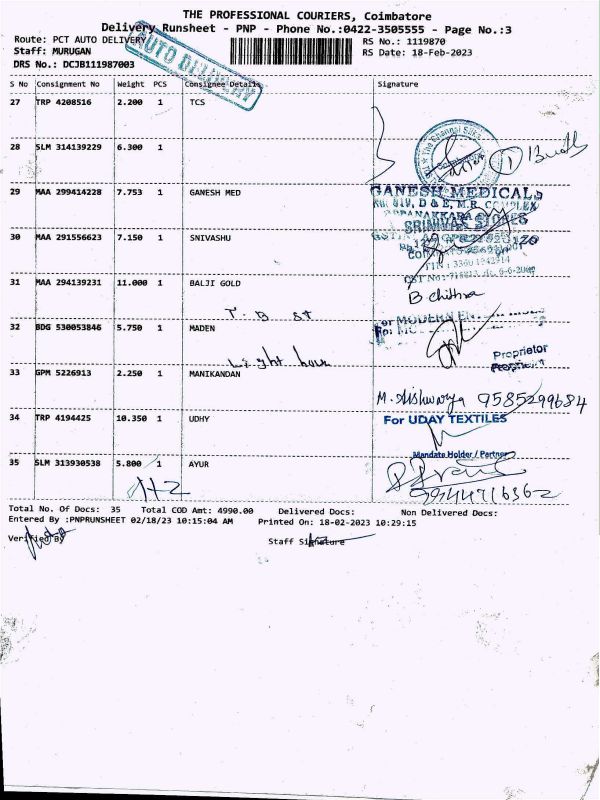 THE PROFESSIONAL COURIERS, Coimbatore
Delivery Runsheet - PNP - Phone No.:0422-3505555 - Page No.:3
Route: PCT AUTO DELIVERY
RS No.: 1119870
Staff: MURUGAN
RS Date: 18-Feb-2023
DRS No.: DCJB111987003
AUTO DELIVERY
S No Consignment No Weight PCS Consignee Details Signature
27 TRP 4208516 2.200 1 TCS
28 SLM 314139229 6.300 1
29 MAA 299414228 7.753 1 GANESH MED
GANESH MEDICALS
SRINIVAS STORES
30 MAA 291556623 7.150 1 SNIVASHU
31 MAA 294139231 11.000 1 BALJI GOLD
B chithra
T. B st
32 BDG 530053846 5.750 1 MADEN
For MODERN
Light house
Proprietor
33 GPM 5226913 2.250 1 MANIKANDAN
M. Aishwarya 9585299684
34 TRP 4194425 10.350 1 UDHY
For UDAY TEXTILES
Mandate Holder / Partner
35 SLM 313930538 5.800 1 AYUR
Total No. Of Docs: 35 Total COD Amt: 4990.00 Delivered Docs: Non Delivered Docs:
Entered By :PNPRUNSHEET 02/18/23 10:15:04 AM Printed On: 18-02-2023 10:29:15
Verified By Staff Signature